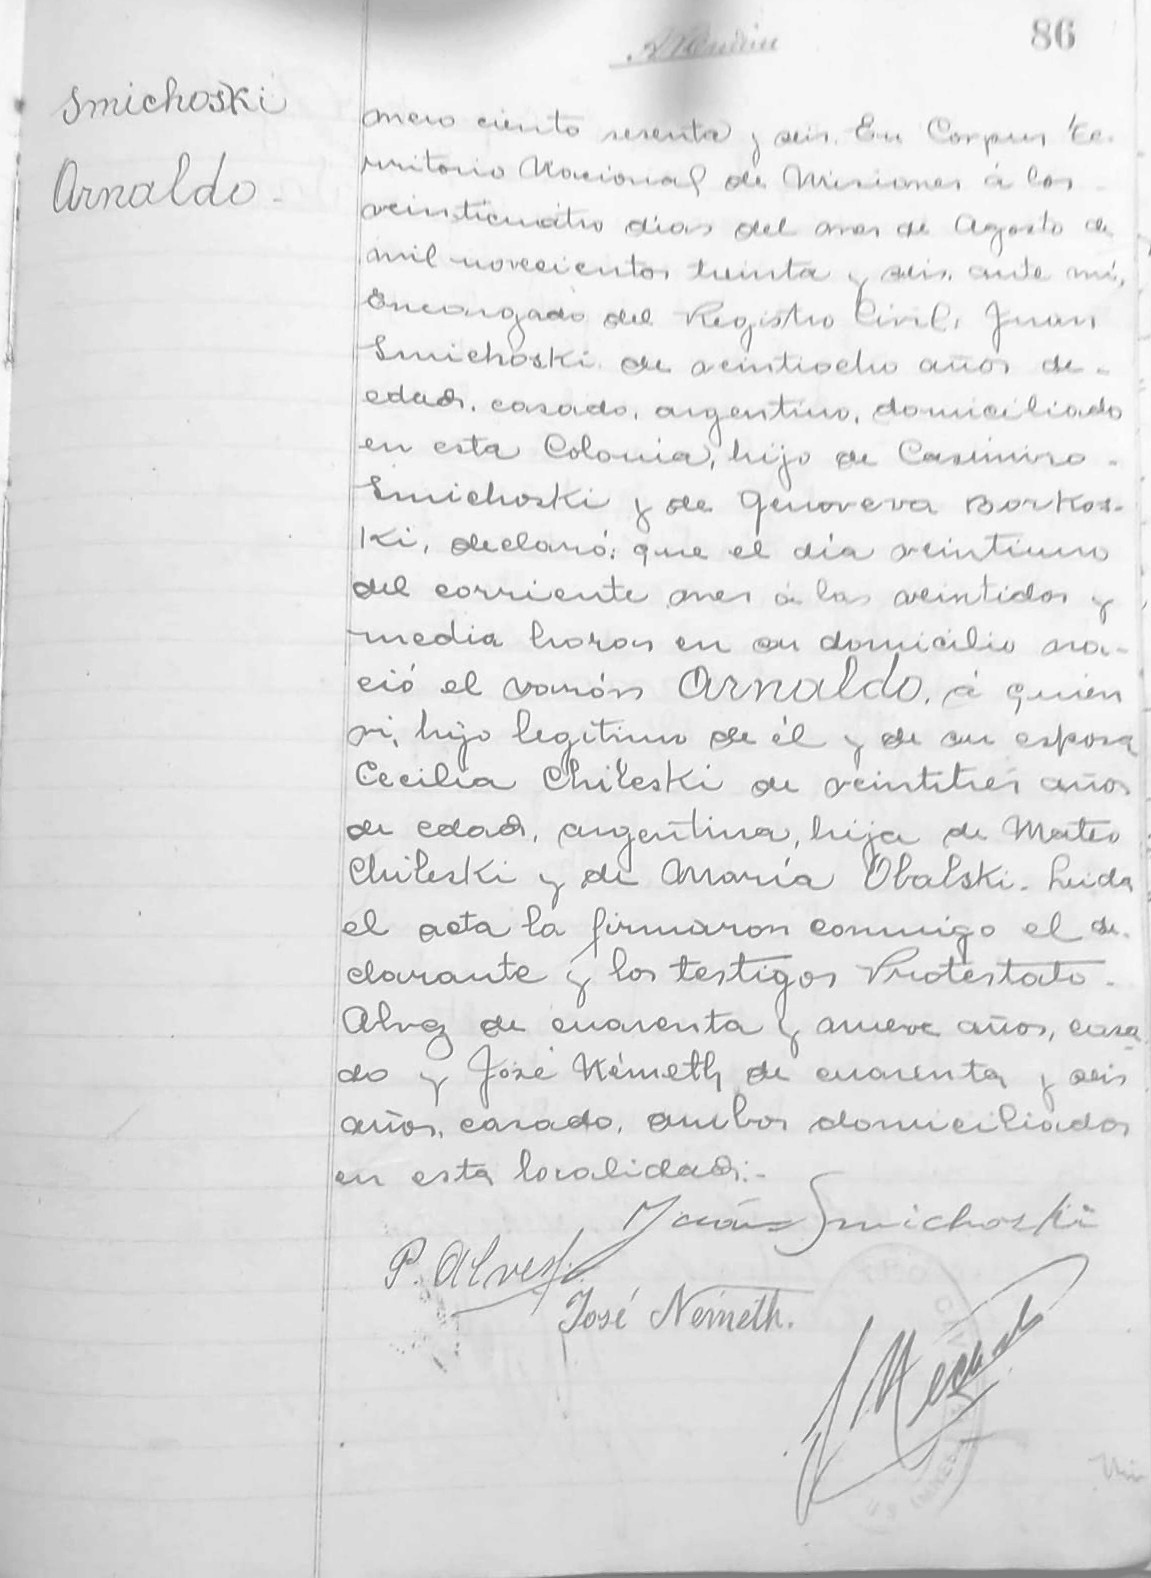 86
Smichoski
Arnaldo -
mero ciento sesenta y seis. En Corpus Te-
rritorio Nacional de Misiones á los
veinticuatro días del mes de Agosto de
mil novecientos treinta y seis, ante mí,
Encargado del Registro Civil, Juan
Smichoski de veintiocho años de -
edad, casado, argentino, domiciliado
en esta Colonia, hijo de Casimiro -
Smichoski y de Genoveva Borkos-
ki, declaró: que el día veintiuno
del corriente mes á las veintidos y
media horas en su domicilio na-
ció el varón Arnaldo, á quien
ví, hijo legítimo de él y de su esposa
Cecilia Chileski de veintitrés años
de edad, argentina, hija de Mateo
Chileski y de María Obalski. Leida
el acta la firmaron conmigo el de-
clarante y los testigos Protestato -
Alvez de cuarenta y nueve años, casa
do y José Németh de cuarenta y seis
años, casado, ambos domiciliados
en esta localidad:-
Juan Smichoski
P. Alves
José Németh.